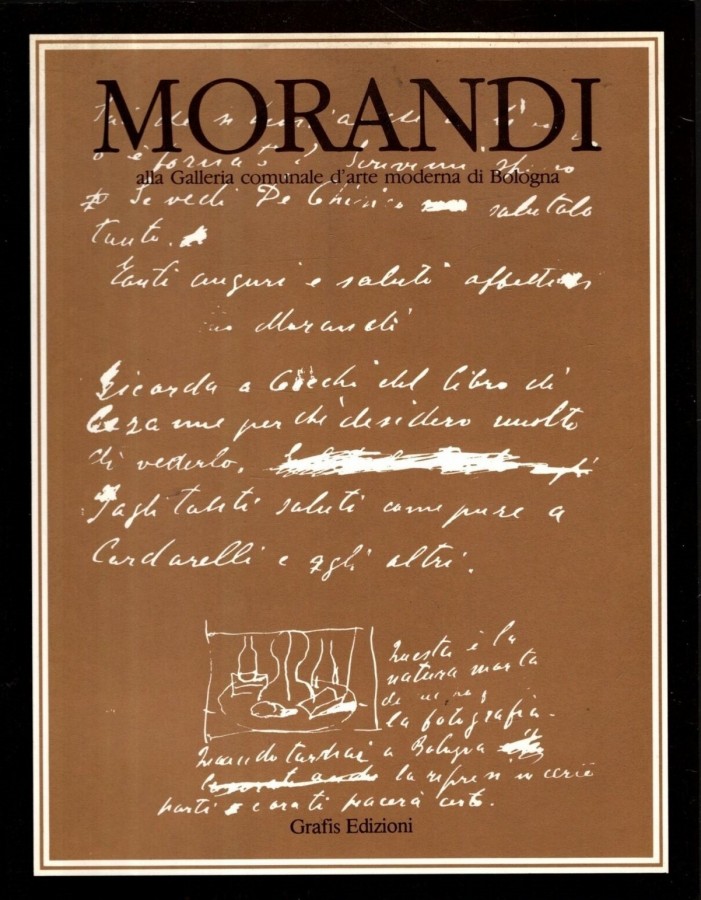 MORANDI
alla Galleria comunale d'arte moderna di Bologna
Se vedi De Chirico salutalo
tanto.
Tanti auguri e saluti affettuosi
Morandi
Ricorda a Cecchi del libro di
Cezanne perchè desidero molto
di vederlo.
Fagli tanti saluti come pure a
Cardarelli e agli altri.
Questa è la
natura morta
di cui
la fotografia.
Quando tornai a Bologna
la ripresi in certe
parti e ora ti piacerà
Grafis Edizioni